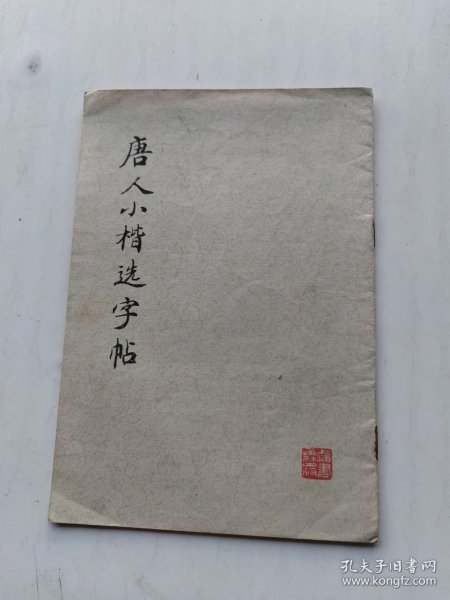 唐人小楷选字帖
孔夫子旧书网
www.kongfz.com